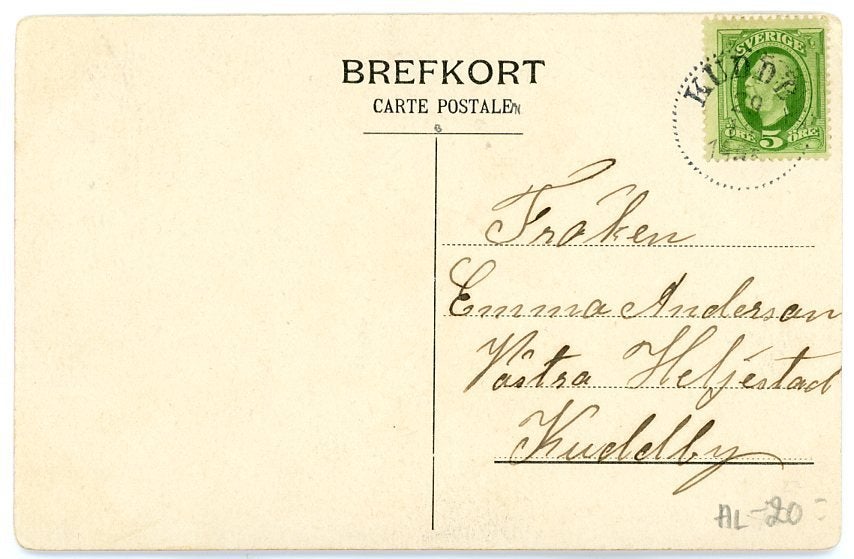 BREFKORT
CARTE POSTALE
SVERIGE
KUDDB
29
ÖRE 5 ÖRE
Fröken
Emma Anderson
Västra Heljestad
Kuddby
AL-20:-